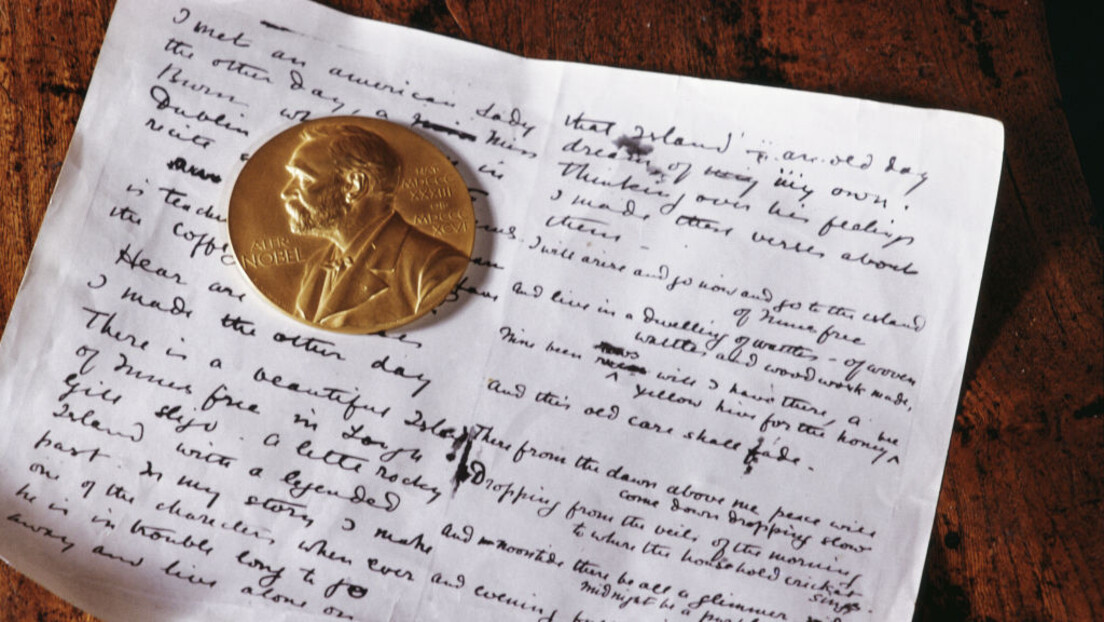 I met an american Lady
the other day, a Miss
Burn in
Dublin
recite
is
the
Hear are
I made the other day
There is a beautiful Island
of Innis free in Lough
Gill sligo. A little rocky
Island with a legended
past. In my story I make
one of the characters when ever
he is in trouble long to go
away and live alone on
ALFR.
NOBEL
NAT.
MDCCC
XXXIII
OB.
MDCCC
XCVI
that Island — an old day
dream of my own.
Thinking over his feelings
I made these verses about
them —
I will arise and go now and go to the island
of Innis free
And live in a dwelling of wattles – of woven
wattles and wood work made,
Nine bean rows will I have there, a
yellow hive for the honey bee
And this old care shall fade.
There from the dawn above me peace will
come down dropping slow
Dropping from the veils of the morning
to where the household cricket
sings.
And noontide there be all a glimmer
midnight be a
and evening